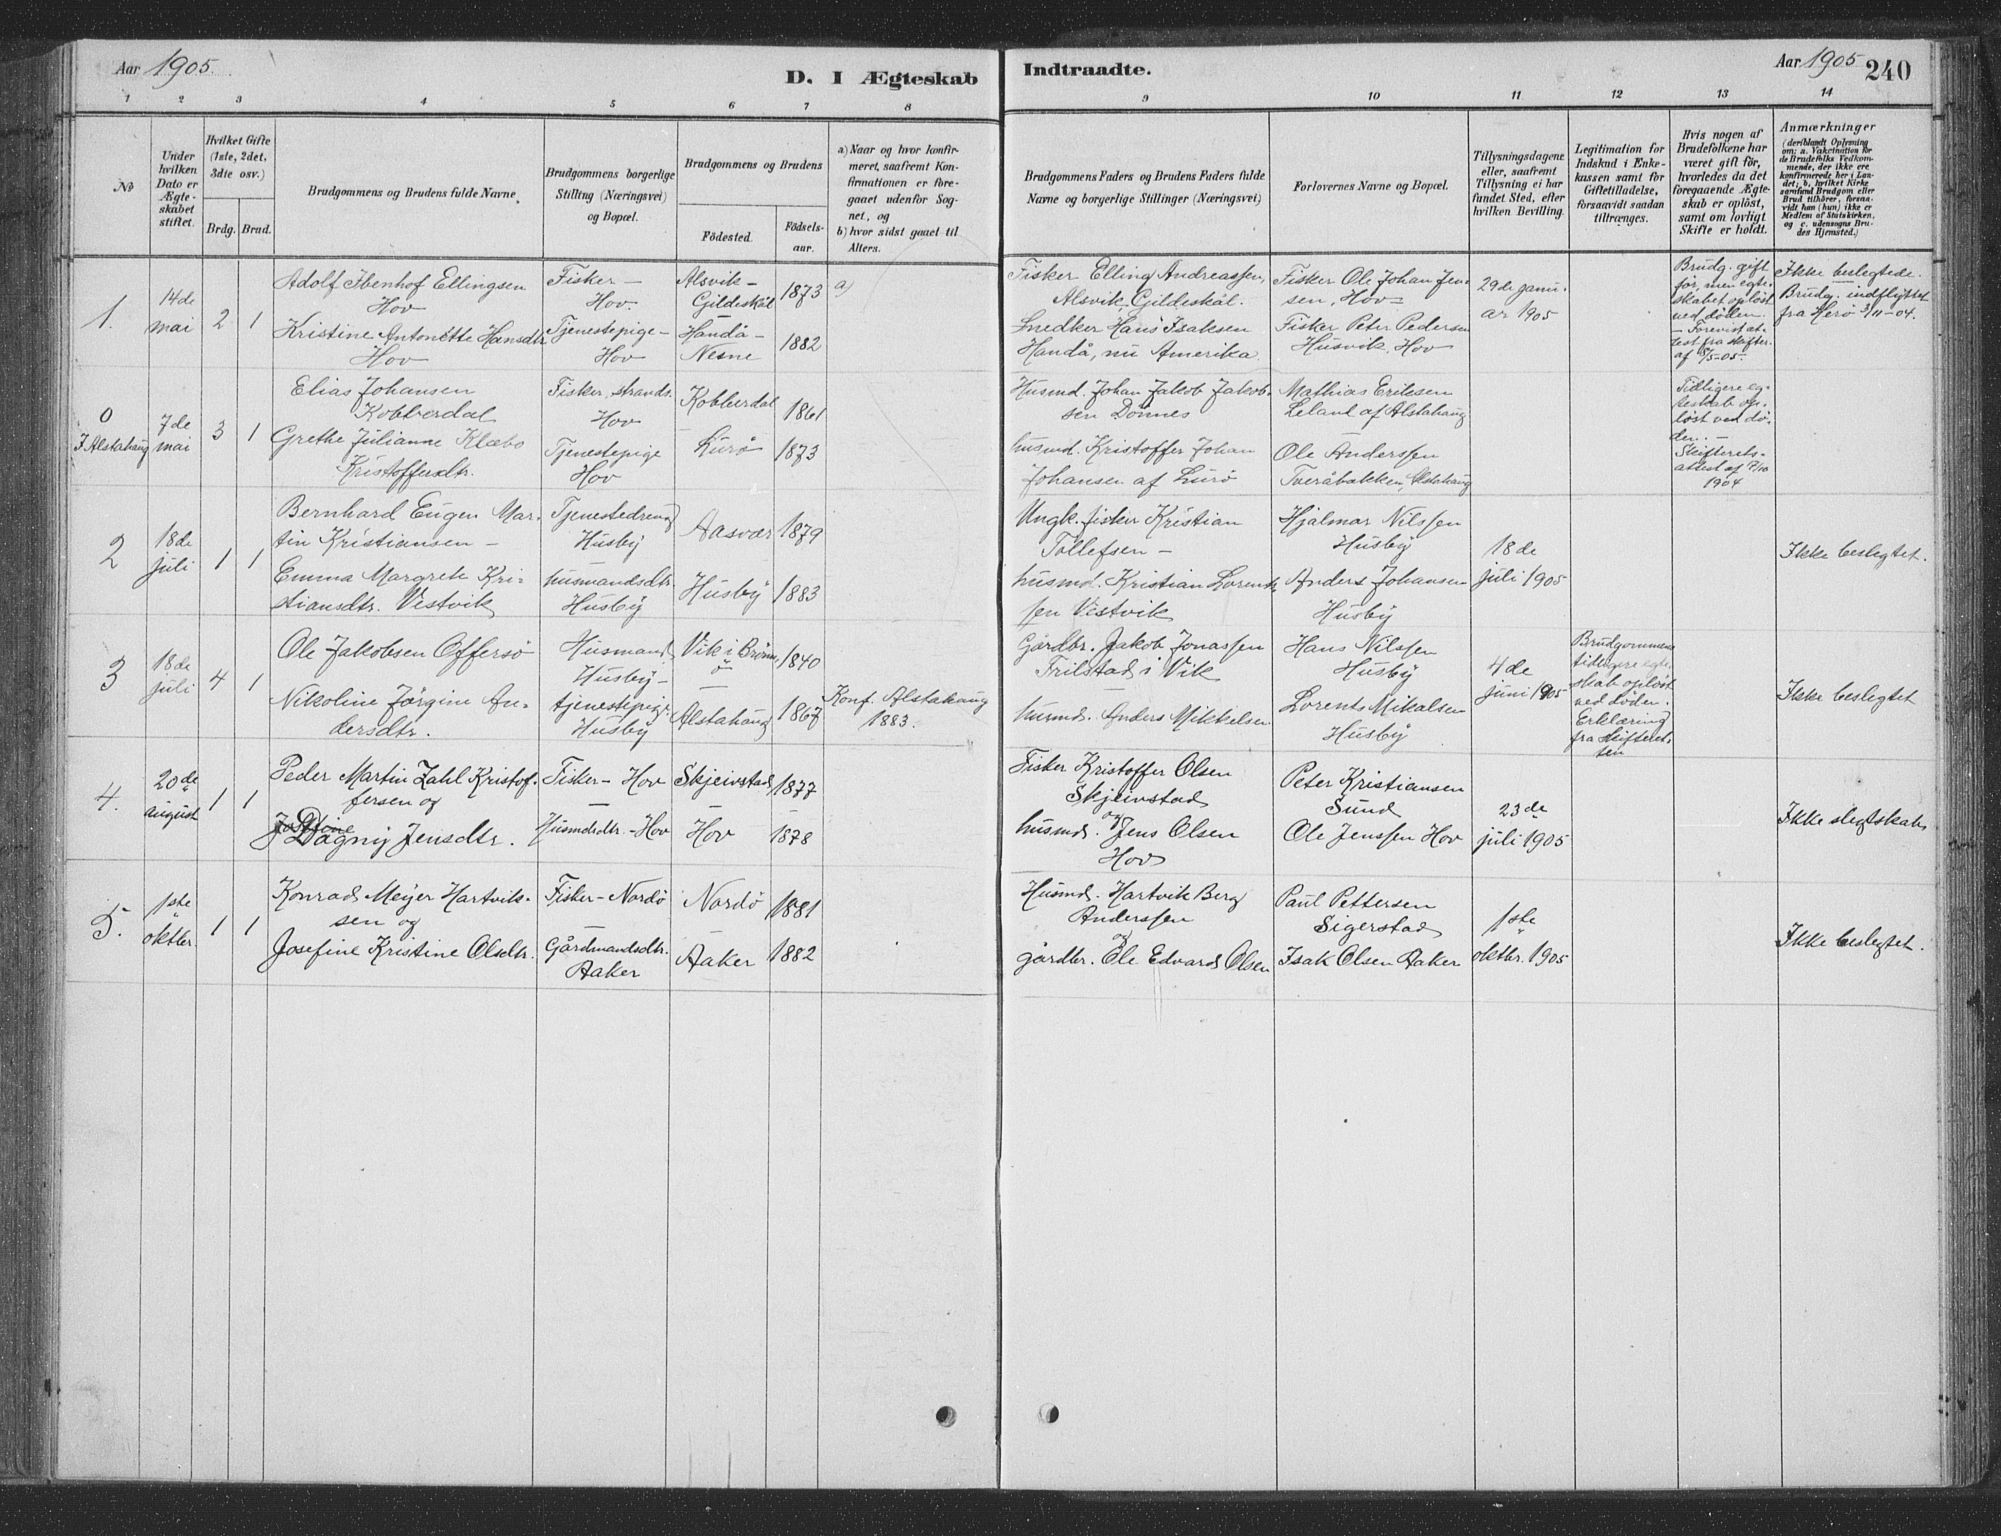 Aar 1905.
D. I Ægteskab
Indtraadte.
Aar 1905
240
1 2 3 4 5 6 7 8 9 10 11 12 13 14
No
Under
hvilken
Dato er
Ægte-
skabet
stiftet.
Hvilket Gifte
(1ste, 2det,
3die osv.)
Brdg. Brud.
Brudgommens og Brudens fulde Navne.
Brudgommens borgerlige
Stilling (Næringsvei)
og Bopæl.
Brudgommens og Brudens
Fødested.
Fødsels-
aar.
a) Naar og hvor konfir-
meret, saafremt Kon-
firmationen er fore-
gaaet udenfor Sog-
net, og
b) hvor sidst gaaet til
Alters.
Brudgommens Faders og Brudens Faders fulde
Navne og borgerlige Stillinger (Næringsvei)
Forlovernes Navne og Bopæl.
Tillysningsdagene
eller, saafremt
Tillysning ei har
fundet Sted, efter
hvilken Bevilling.
Legitimation for
Indskud i Enke-
kassen samt for
Giftetilladelse,
forsaavidt saadan
tiltrænges.
Hvis nogen af
Brudefolkene har
været gift før,
hvorledes da det
foregaaende Ægte-
skab er opløst,
samt om lovligt
Skifte er holdt.
Anmærkninger
(deriblandt Oplysning
om: a. Vakcination for
de Brudefolks Vedkom-
mende, der ikke ere
konfirmerede her i Lan-
det, b. hvilket Kirke
samfund Brudgom eller
Brud tilhører, forsaa-
vidt han (hun) ikke er
Medlem af Statskirken,
og c. udensogns Bru-
des Hjemsted.)
1.
14de
mai
2 1
Adolf Ibenhof Ellingsen
Hov
Kristine Antonette Hansdtr
Hov
Fisker -
Hov.
Tjenestepige -
Hov
Alsvik -
Gildeskål
Handå -
Nesne
1873
1882
a)
Fisker Elling Andreassen,
Alsvik, Gildeskål.
Snedker Hans Isaksen
Handå, nu Amerika.
Fisker Ole Johan Jen-
sen, Hov
Fisker Peter Pedersen
Husvik, Hov
29de janu-
ar 1905
Brudg. gift
før, men egte-
skabet opløst
ved døden.
- Forevist at-
test fra skifter.
af 5/5-05.
Ikke beslegtede.
Brudg. indflyttet
fra Herø 3/11-04.
0
I Alstahaug
7de
mai
3 1
Elias Johansen
Kobberdal
Grethe Julianne Klæbo
Kristoffersdtr.
Fisker, strands.
Hov
Tjenestepige
Hov
Kobberdal
Lurø
1861
1873
Husmd. Johan Jakob Jakob-
sen Dønnes
husmd. Kristoffer Johan
Johansen af Lurø
Mathias Eriksen
Leland af Alstahaug
Ole Anderssen
Tveråbakken, Alstahaug
Tidligere eg-
teskab op-
løst ved dø-
den. -
Skifterets-
attest af 7/10
1904
2
18de
juli
1 1
Bernhard Eugen Mar-
tin Kristiansen -
Emma Margrete Kri-
stiansdtr. Vestvik
Tjenestedreng
Husby
husmandsdtr.
Husby
Aasvær
Husby
1879
1883
Ungk. fisker Kristian
Tollefsen -
husmd. Kristian Lorent-
sen Vestvik
Hjalmar Nilssen
Husby
Anders Johansen
Husby
18de
juli 1905
Ikke beslegtet.
3
18de
juli
4 1
Ole Jakobsen Offersø
Nikoline Jørgine An-
dersdtr.
Husmand
Husby -
tjenestepige
Husby
Vik i Brønn-
ø
Alstahaug
1840
1867
Konf. Alstahaug
1883.
Gårdbr. Jakob Jonassen
Trilstad i Vik
husmd. Anders Mikkelsen
Hans Nilssen
Husby
Lorents Mikalsen
Husby
4de
juni 1905
Brudgommens
tidligere egte-
skab opløst
ved døden.
Erklæring
fra skifteret-
ten
Ikke beslegtet
4.
20de
august
1 1
Peder Martin Zahl Kristof-
fersen og
Josefine
Dagny Jensdtr.
Fisker - Hov
Husmdsdtr. - Hov
Skjeivstad
Hov
1877
1878
Fisker Kristoffer Olsen
Skjeivstad
og
husmd. Jens Olsen
Hov
Peter Kristiansen
Sund
Ole Jenssen Hov
23de
juli 1905
Ikke slegtskab
5.
1ste
oktbr.
1 1
Konrad Meyer Hartvik-
sen og
Josefine Kristine Olsdtr.
Fisker - Nordø
Gårdmandsdtr.
Aaker
Nordø
Aaker
1881
1882
Husmd. Hartvik Berg
Anderssen
og
gårdbr. Ole Edvard Olsen
Paul Pettersen
Sigerstad
Isak Olsen Aaker
1ste
oktbr. 1905
Ikke beslegtet.